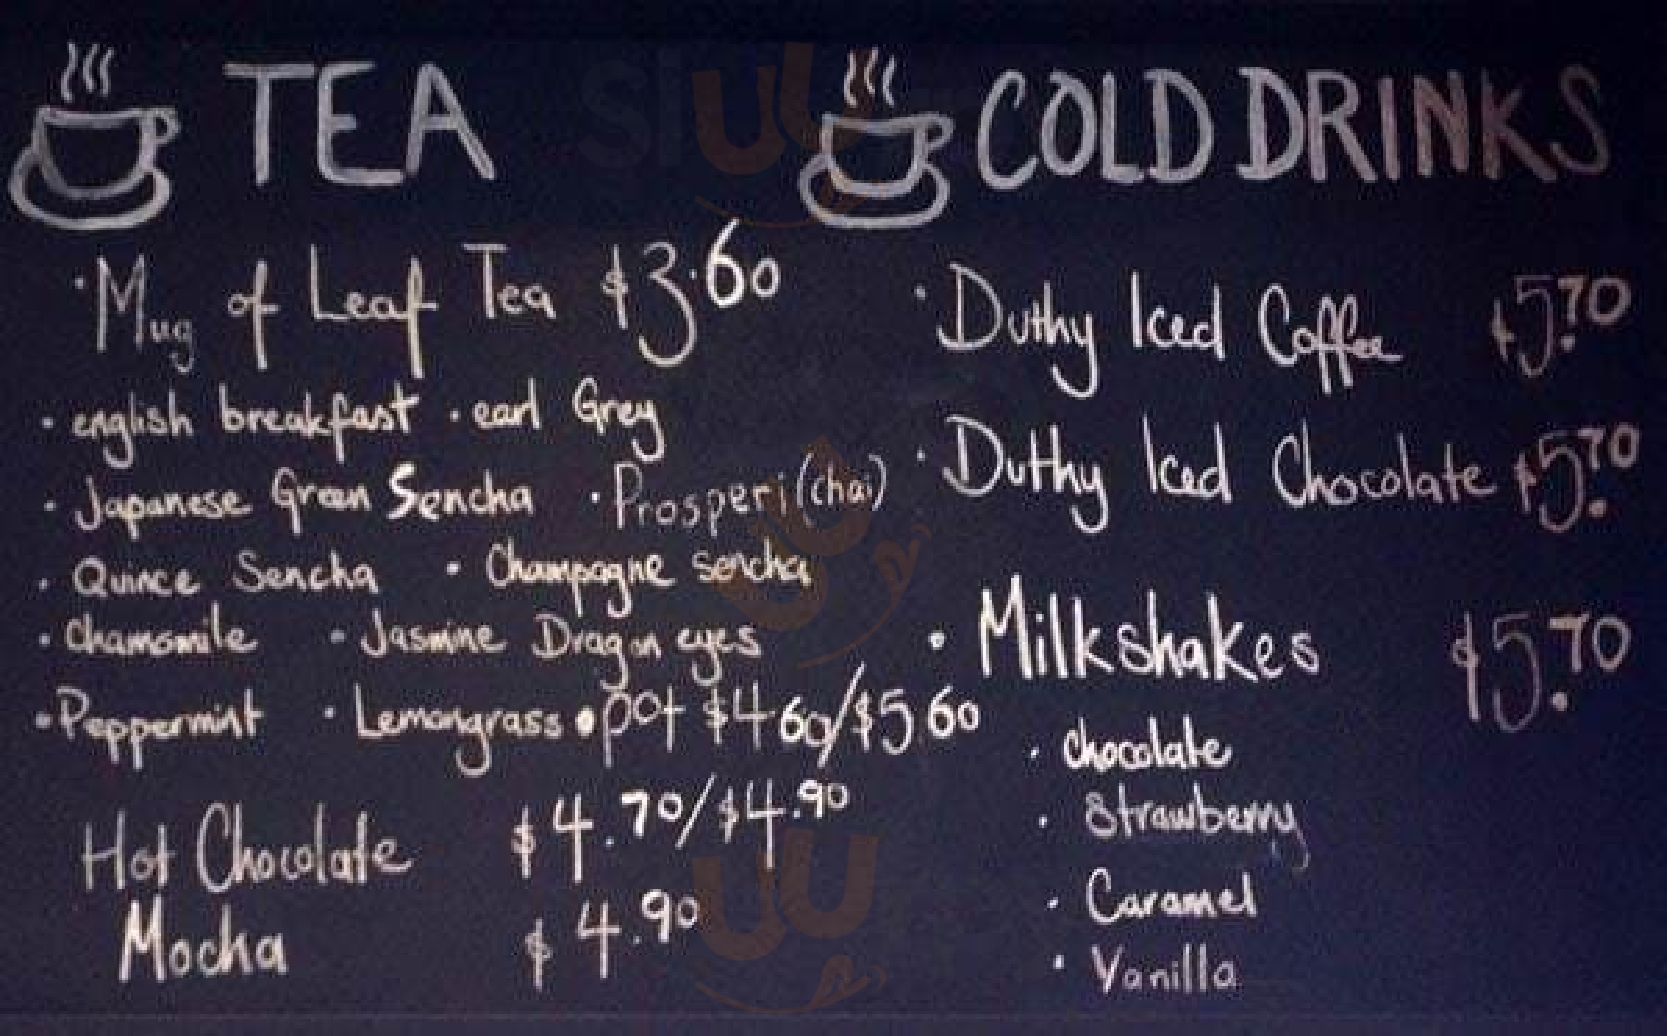 TEA
· Mug of Leaf Tea $3.60
· english breakfast · earl Grey
· Japanese Green Sencha · Prosperi (chai)
· Quince Sencha · Champagne sencha
· Chamomile · Jasmine Dragon eyes
· Peppermint · Lemongrass • pot $4 60/$5 60
Hot Chocolate $4.70/$4.90
Mocha $4.90
COLD DRINKS
· Duthy Iced Coffee $5.70
· Duthy Iced Chocolate $5.70
· Milkshakes $5.70
· chocolate
· Strawberry
· Caramel
· Vanilla